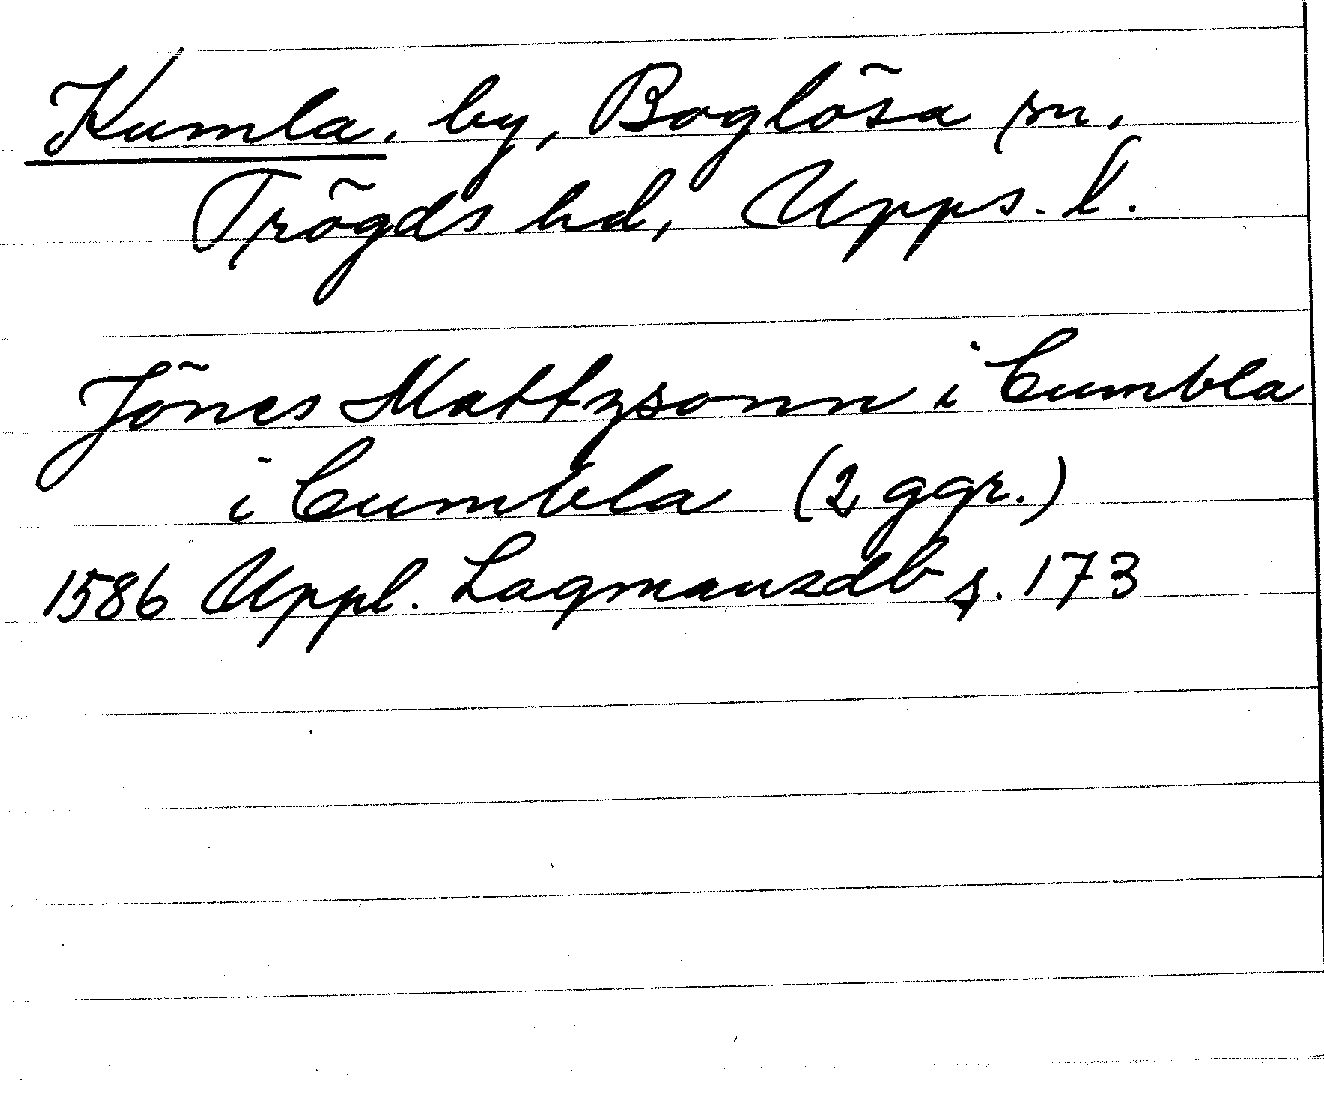 Kumla, by, Boglösa sn,
Trögds hd, Upps. l.
Jönes Mattzsonn i Cumbla
i Cumbla (2 ggr.)
1586 Uppl. Lagmansdb s. 173